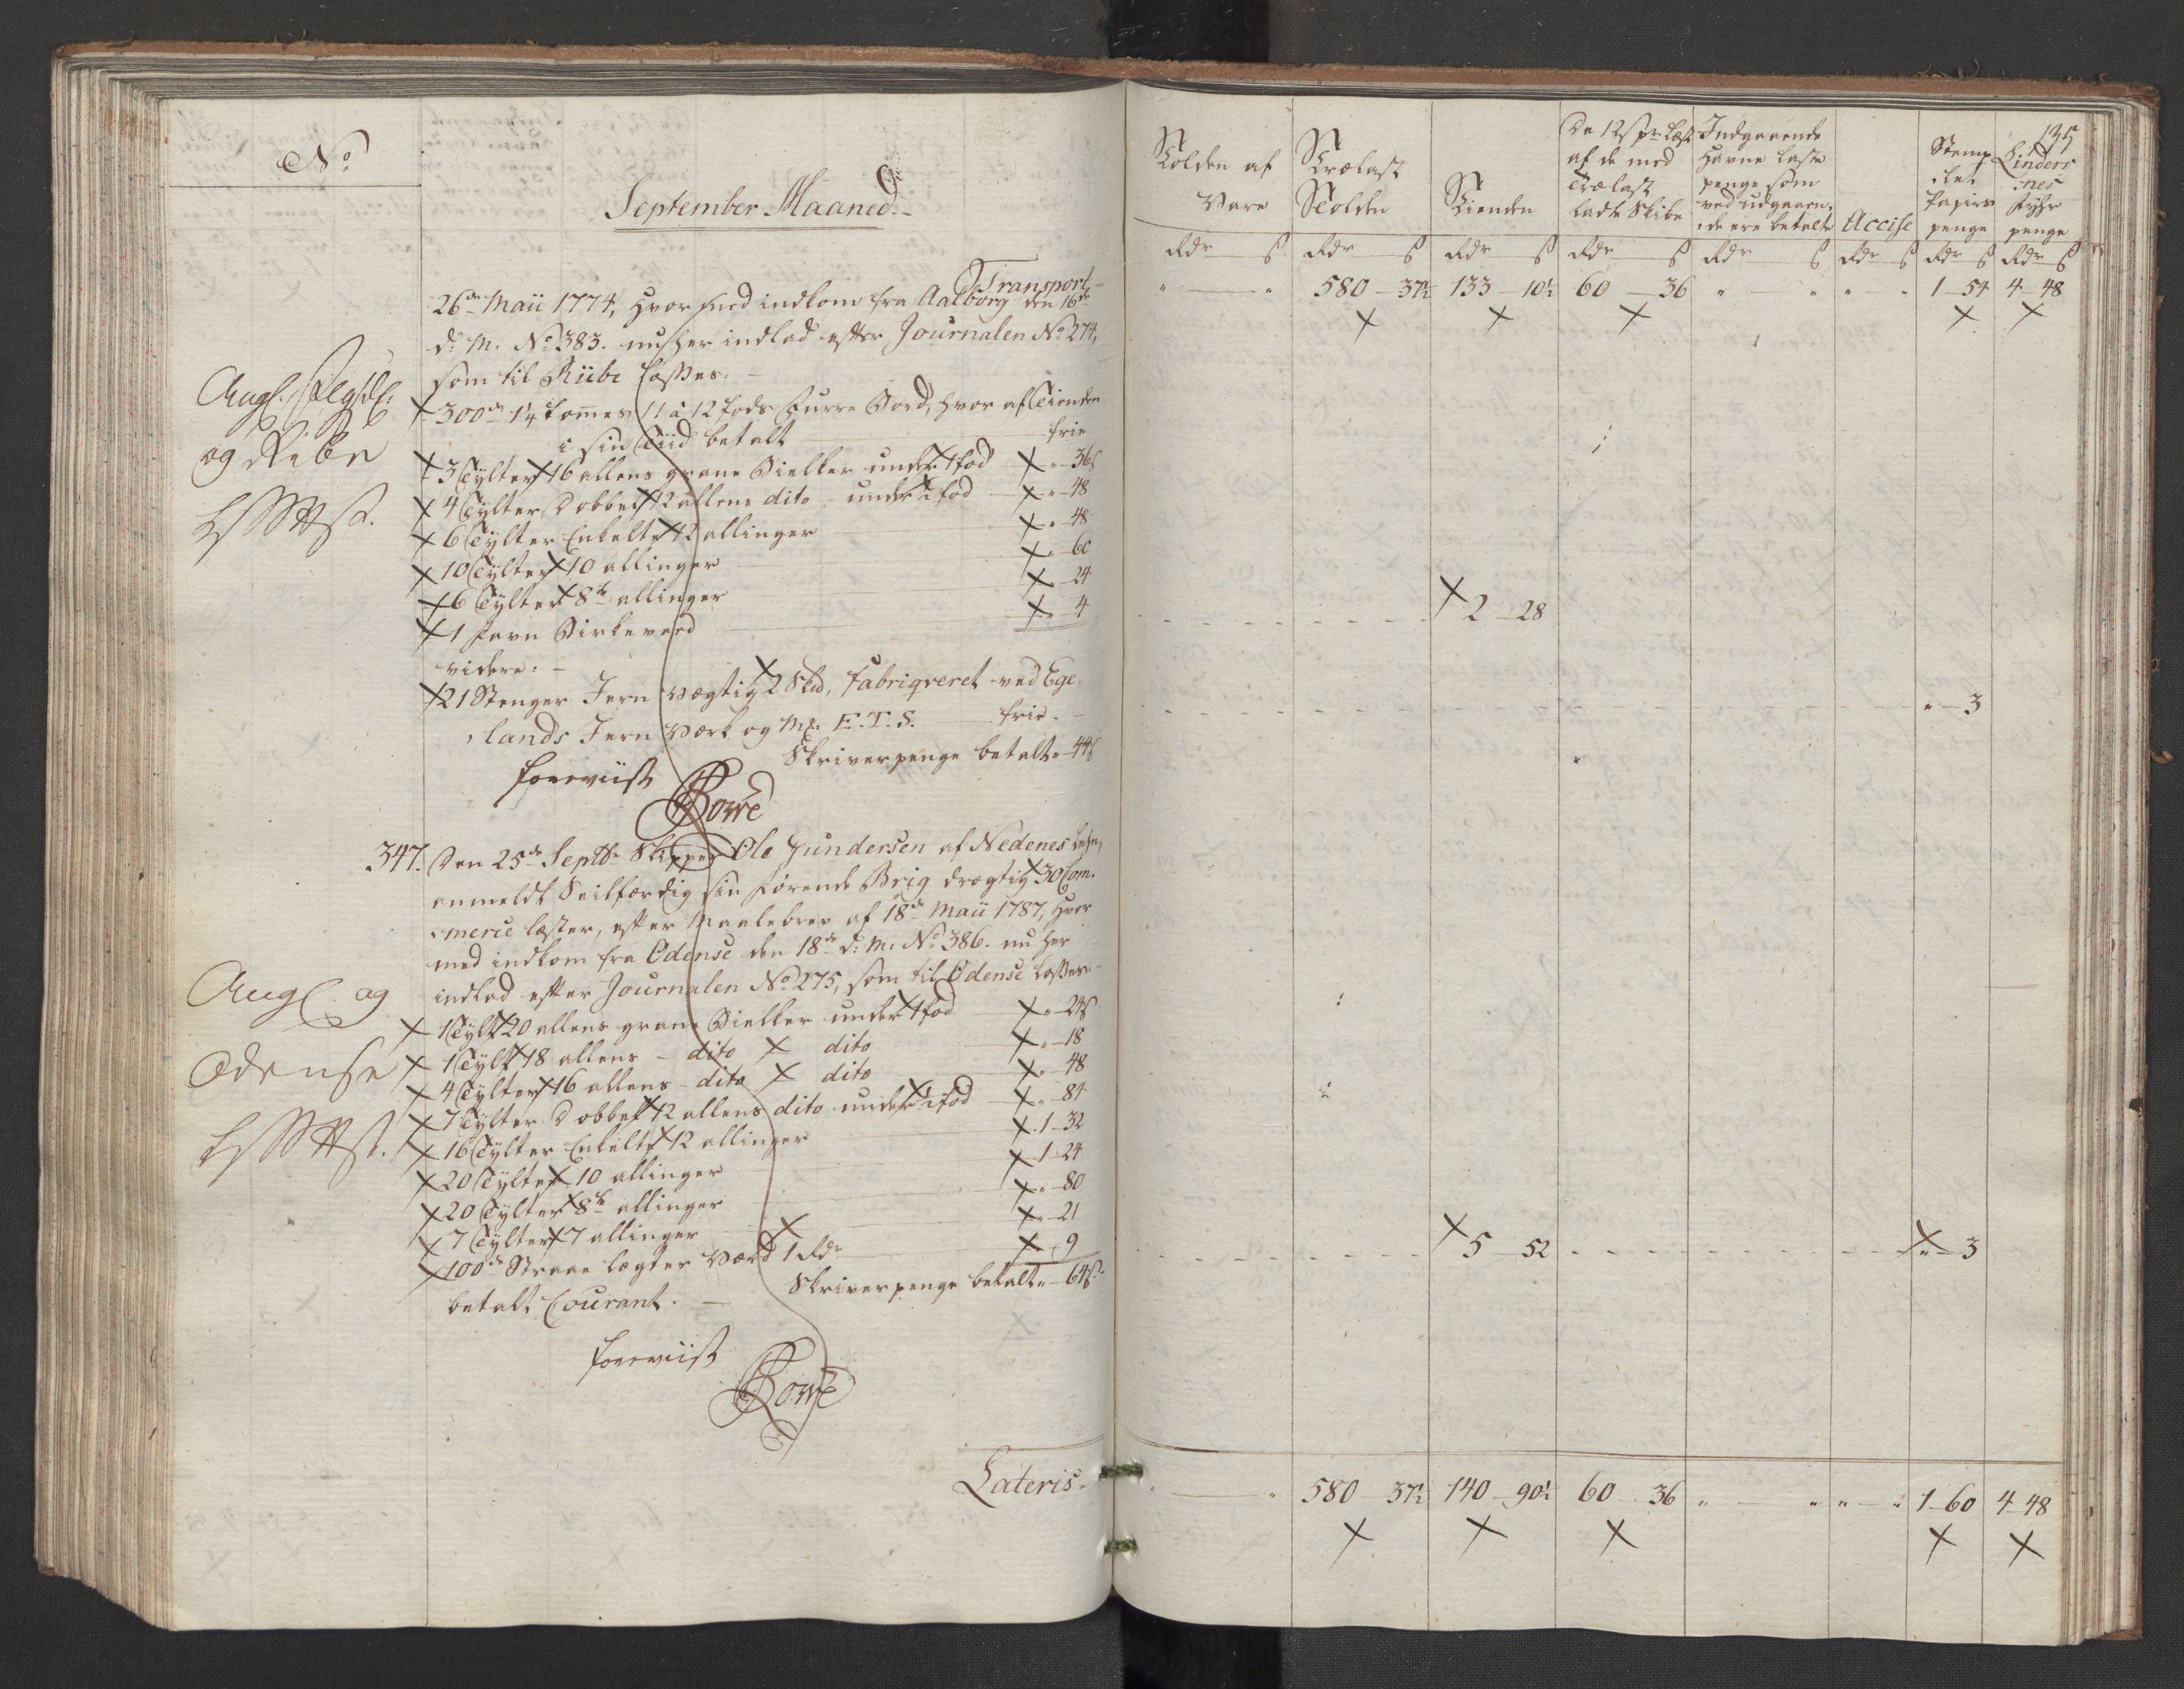 No
September Maaned.
Transport
26de Maii 1774, hvormed indkom fra Aalborg den 16de
d: M. No 383. nu her indlad efter Journalen No 274,
som til Riibe losses.
300de 1¼ Tommes 11 a 12 fods furre Bord, hvor af Tienden
i sin Tiid betalt frie
3 Tylter 16 allens grane Bielker under 1 fod " 36ß
4 Tylter Dobbelt 12 allens dito under 1 fod " 48
6 Tylter Enkelte 12 allinger " 48
10 Tylter 10 allinger " 60
6 Tylter 8te allinger " 24
1 favn Birkeveed " 4
videre:
21 Stenger Jern vægtig 2 Skd, fabriqveret ved Ege-
lands Jern Værk og Mk. E.T.S. frie.
Skriverpenge betalt " 44ß
foreviist
og Ribe
347. Den 25de Septbr Skipper Ole Gundersen af Nedenes Lehn,
anmeldt Seilfærdig sin førende Brig drægtig 30 Com-
merce læster, efter Maalebrev af 18de Maii 1787, hvor
med indkom fra Odense den 18de d: M: No 386. nu her
indlad efter Journalen No 275, som til Odense losses
1 Tylt 20 allens grane Bielker under 1 fod " 24ß
1 Tylt 18 allens dito dito " 18
4 Tylter 16 allens dito dito " 48
7 Tylter Dobbelt 12 allens dito under 1 fod " 84
16 Tylter Enkelte 12 allinger 1 32
20 Tylter 10 allinger 1 24
20 Tylter 8te allinger " 80
7 Tylter 7 allinger " 21
100de Straae lægter værd 1 Rdr " 9
Skriverpenge betalt " 64ß
betalt Courant.
foreviist
og
Odense
Lateris
135
Tolden af Vare
Trælast Tolden
Tienden
De 12ß pr læst af de med Trælast ladte Skibe
Indgaaende Havne laste penge som ved udgaaende ere betalte
Accise
Stemplet Papirs penge
Lindersnes fyhr penge
Rdr ß Rdr ß Rdr ß Rdr ß Rdr ß Rdr ß Rdr ß Rdr ß
" " 580 37½ 133 10½ 60 36 " " " " 1 54 4 48
2 28
" 3
5 52 " 3
" " 580 37½ 140 90½ 60 36 " " " " 1 60 4 48